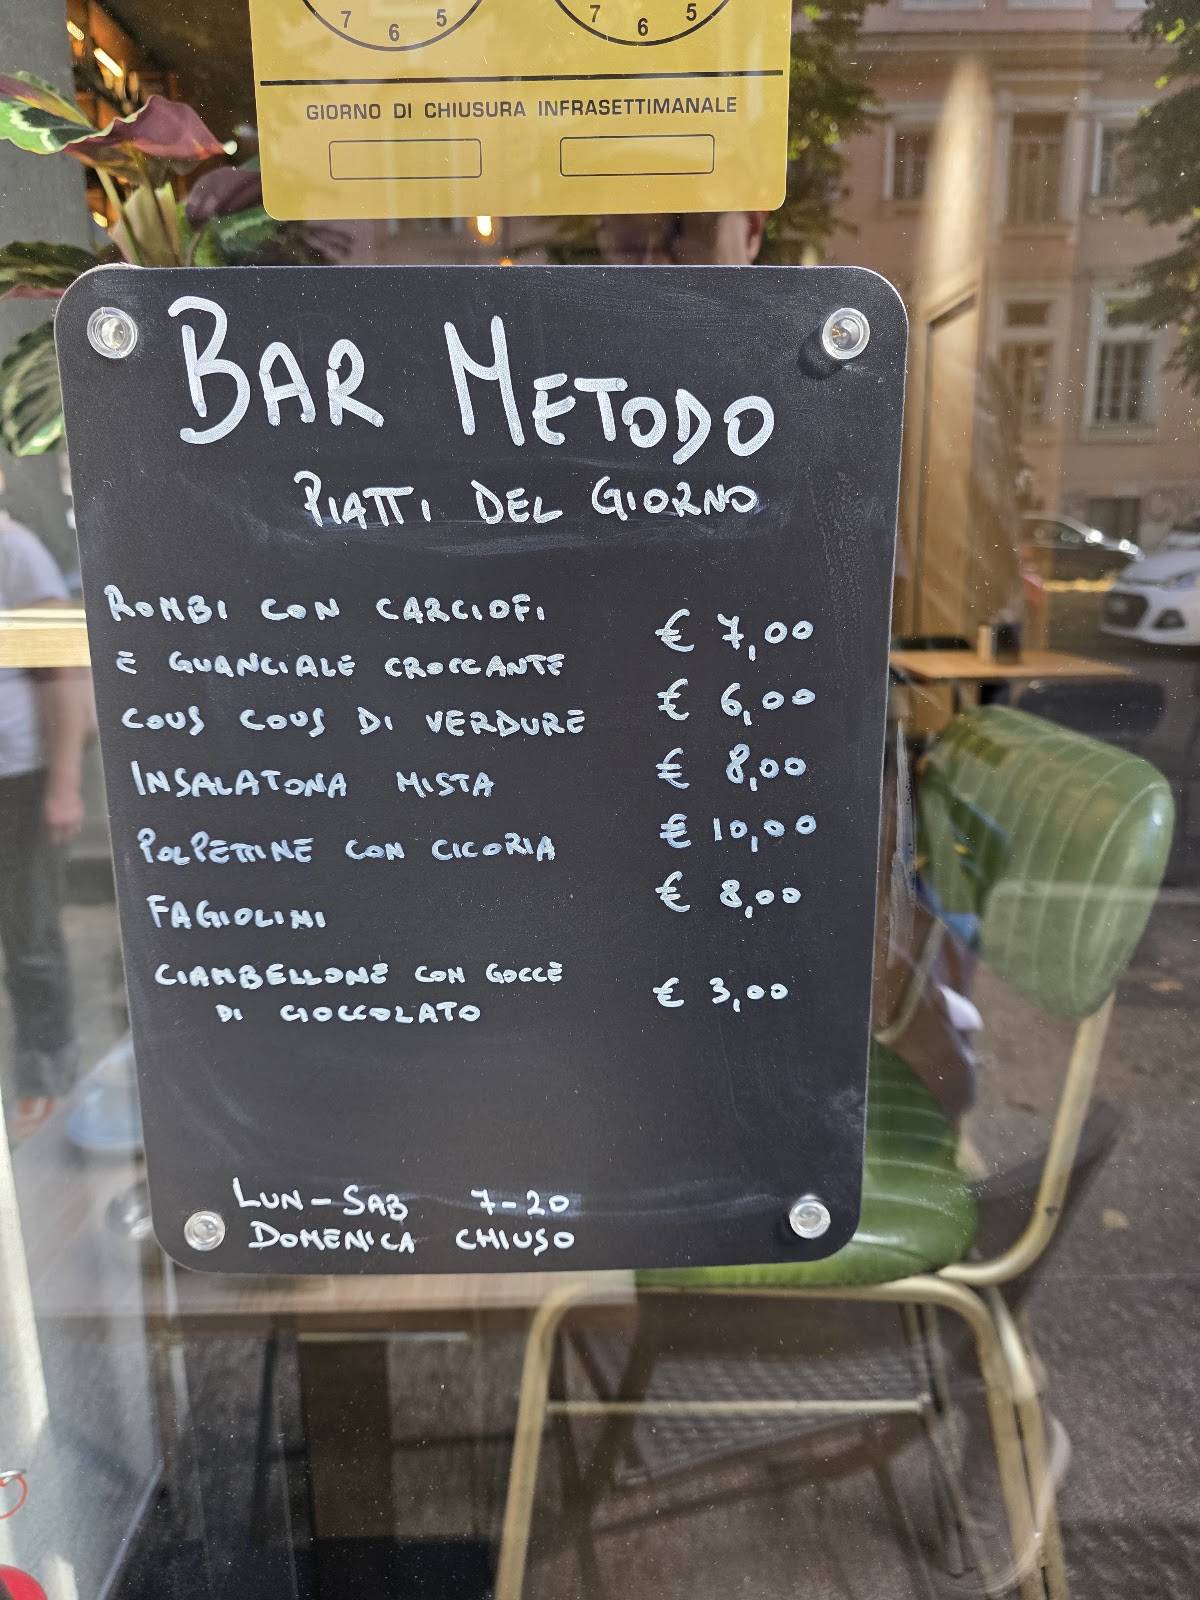 7 6 5 7 6 5
GIORNO DI CHIUSURA INFRASETTIMANALE
BAR METODO
PIATTI DEL GIORNO
ROMBI CON CARCIOFI
E GUANCIALE CROCCANTE € 7,00
COUS COUS DI VERDURE € 6,00
INSALATONA MISTA € 8,00
POLPETTINE CON CICORIA € 10,00
FAGIOLINI € 8,00
CIAMBELLONE CON GOCCE € 3,00
DI CIOCCOLATO
LUN-SAB 7-20
DOMENICA CHIUSO